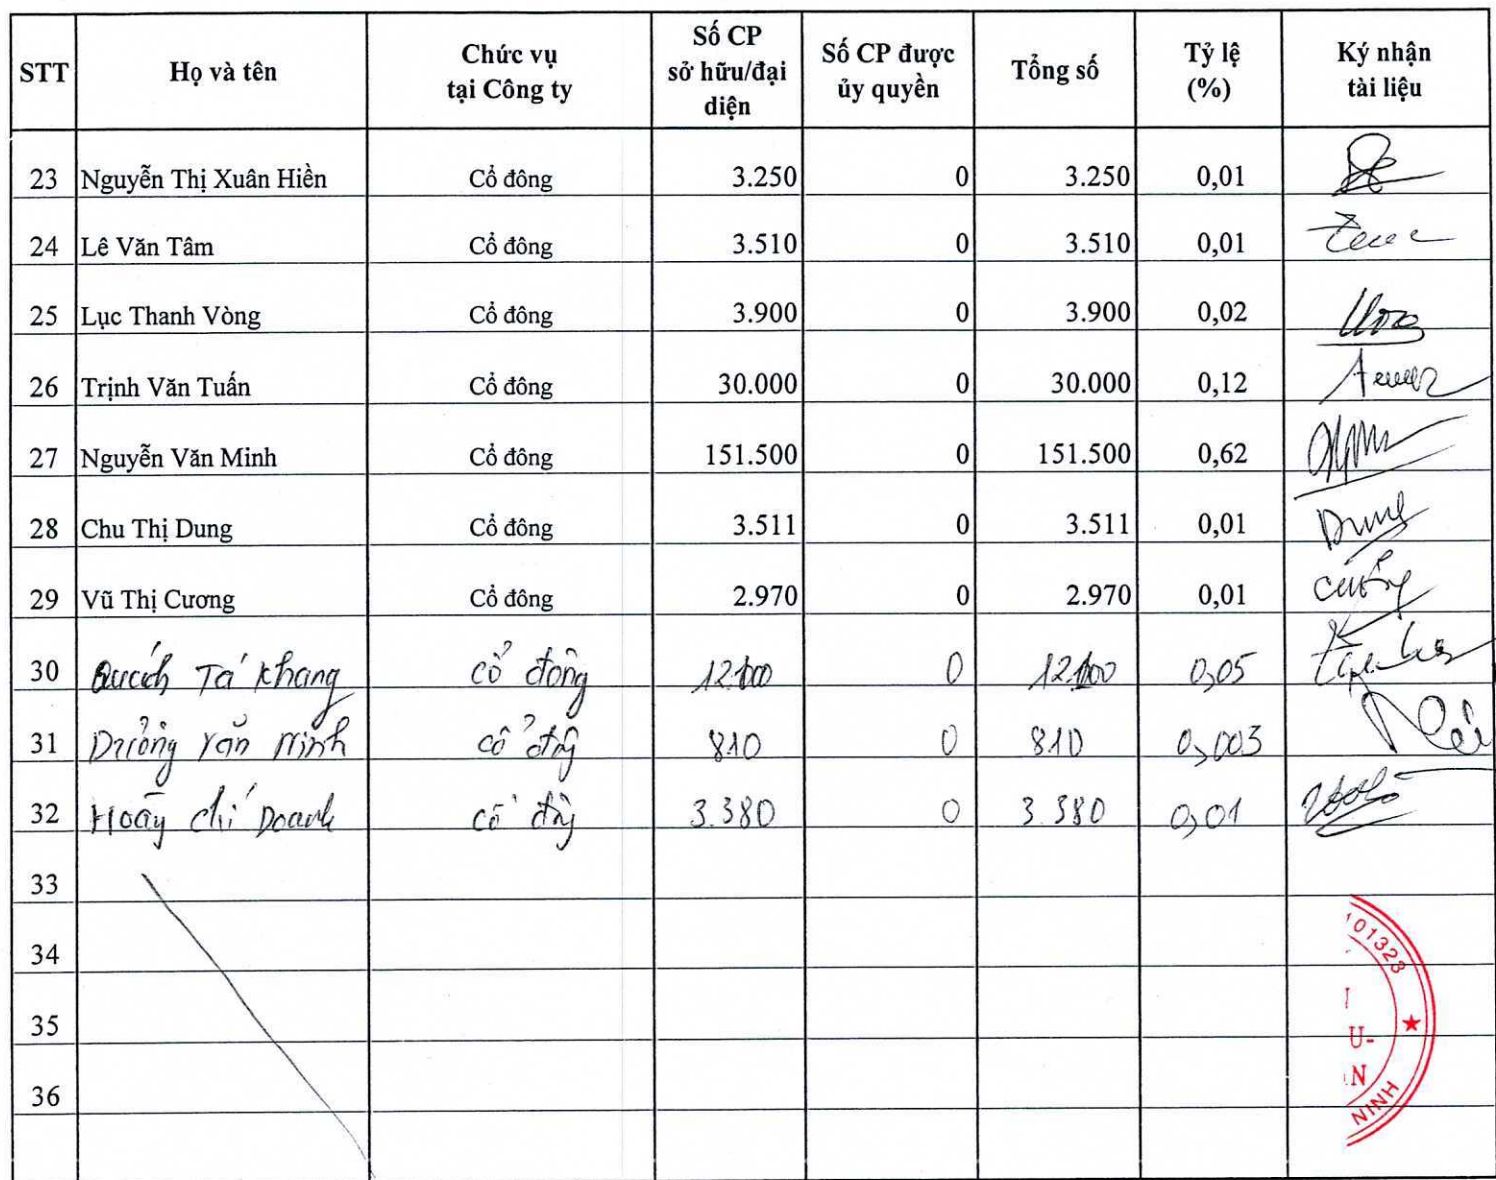 STT Họ và tên Chức vụ tại Công ty Số CP sở hữu/đại diện Số CP được ủy quyền Tổng số Tỷ lệ (%) Ký nhận tài liệu
23 Nguyễn Thị Xuân Hiền Cổ đông 3.250 0 3.250 0,01
24 Lê Văn Tâm Cổ đông 3.510 0 3.510 0,01
25 Lục Thanh Vòng Cổ đông 3.900 0 3.900 0,02
26 Trịnh Văn Tuấn Cổ đông 30.000 0 30.000 0,12
27 Nguyễn Văn Minh Cổ đông 151.500 0 151.500 0,62
28 Chu Thị Dung Cổ đông 3.511 0 3.511 0,01 Dung
29 Vũ Thị Cương Cổ đông 2.970 0 2.970 0,01 Cương
30 Quách Tá Khang cổ đông 0 0,05
31 Dương Văn Ninh cổ đông 810 0 810 0,003
32 Hoàng Chí Doanh cổ đông 3.380 0 3.380 0,01
33
34
35
36
101323
U-
N
NINH